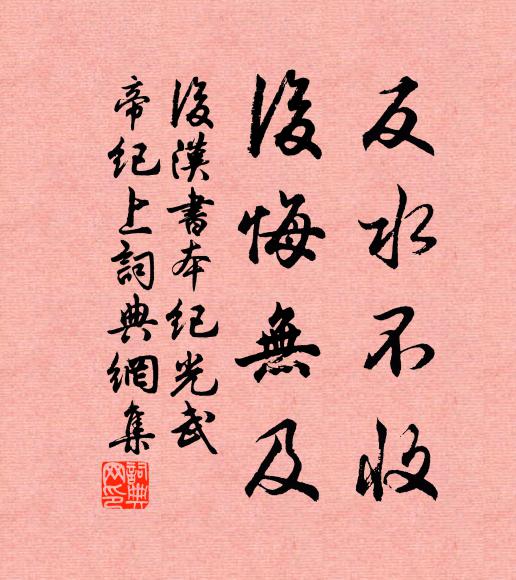 反水不收
後悔無及
後漢書本紀光武
帝紀上詞典網集
詞典
网印